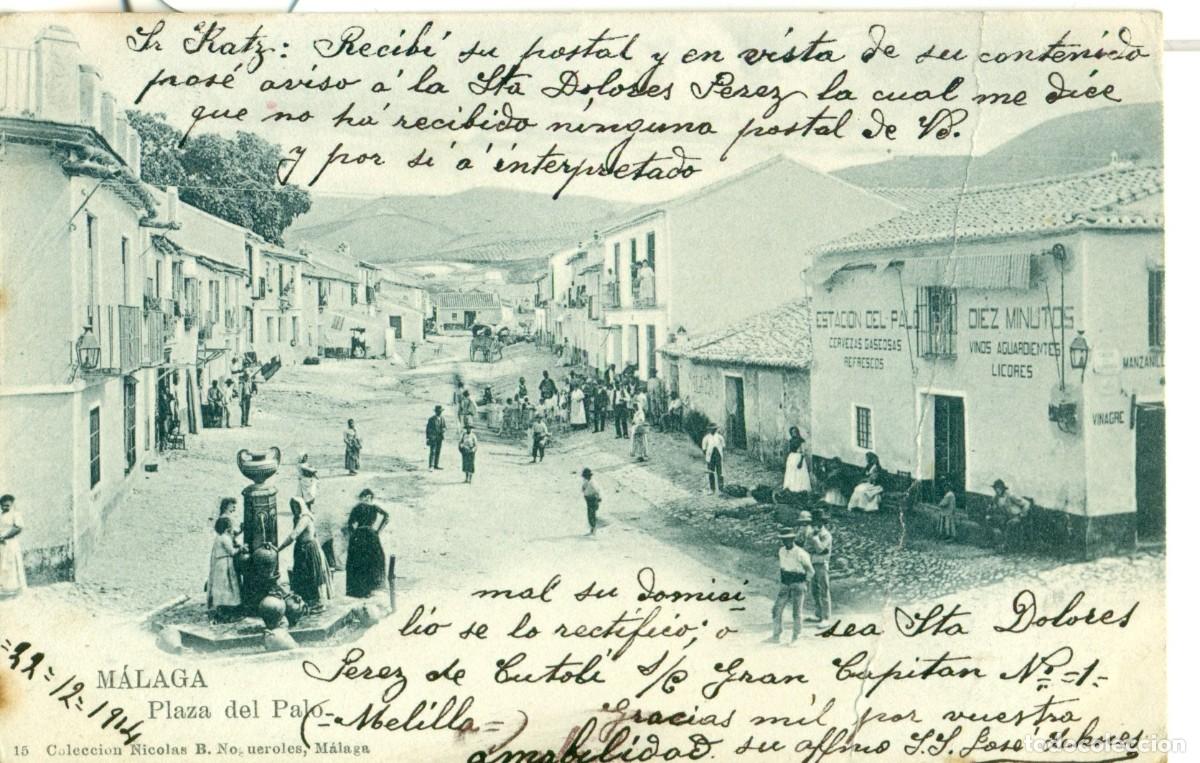 Sr Katz: Recibí su postal y en vista de su contenido
pasé aviso á la Sta Dolores Perez la cual me dice
que no há recibido ninguna postal de Vd.
y por si á interpretado
ESTACION DEL PALO
CERVEZAS GASEOSAS
REFRESCOS
DIEZ MINUTOS
VINOS AGUARDIENTES
LICORES
MANZANILLA
VINAGRE
mal su domici
lio se lo rectifico; o sea Sta Dolores
Perez de Cutoli S/C Gran Capitan Nº-1-
(-Melilla-) Gracias mil por vuestra
amabilidad. su affmo S.S. José
=22=12=1914
MÁLAGA
Plaza del Palo
15 Coleccion Nicolas B. Nogueroles, Málaga
todocoleccion